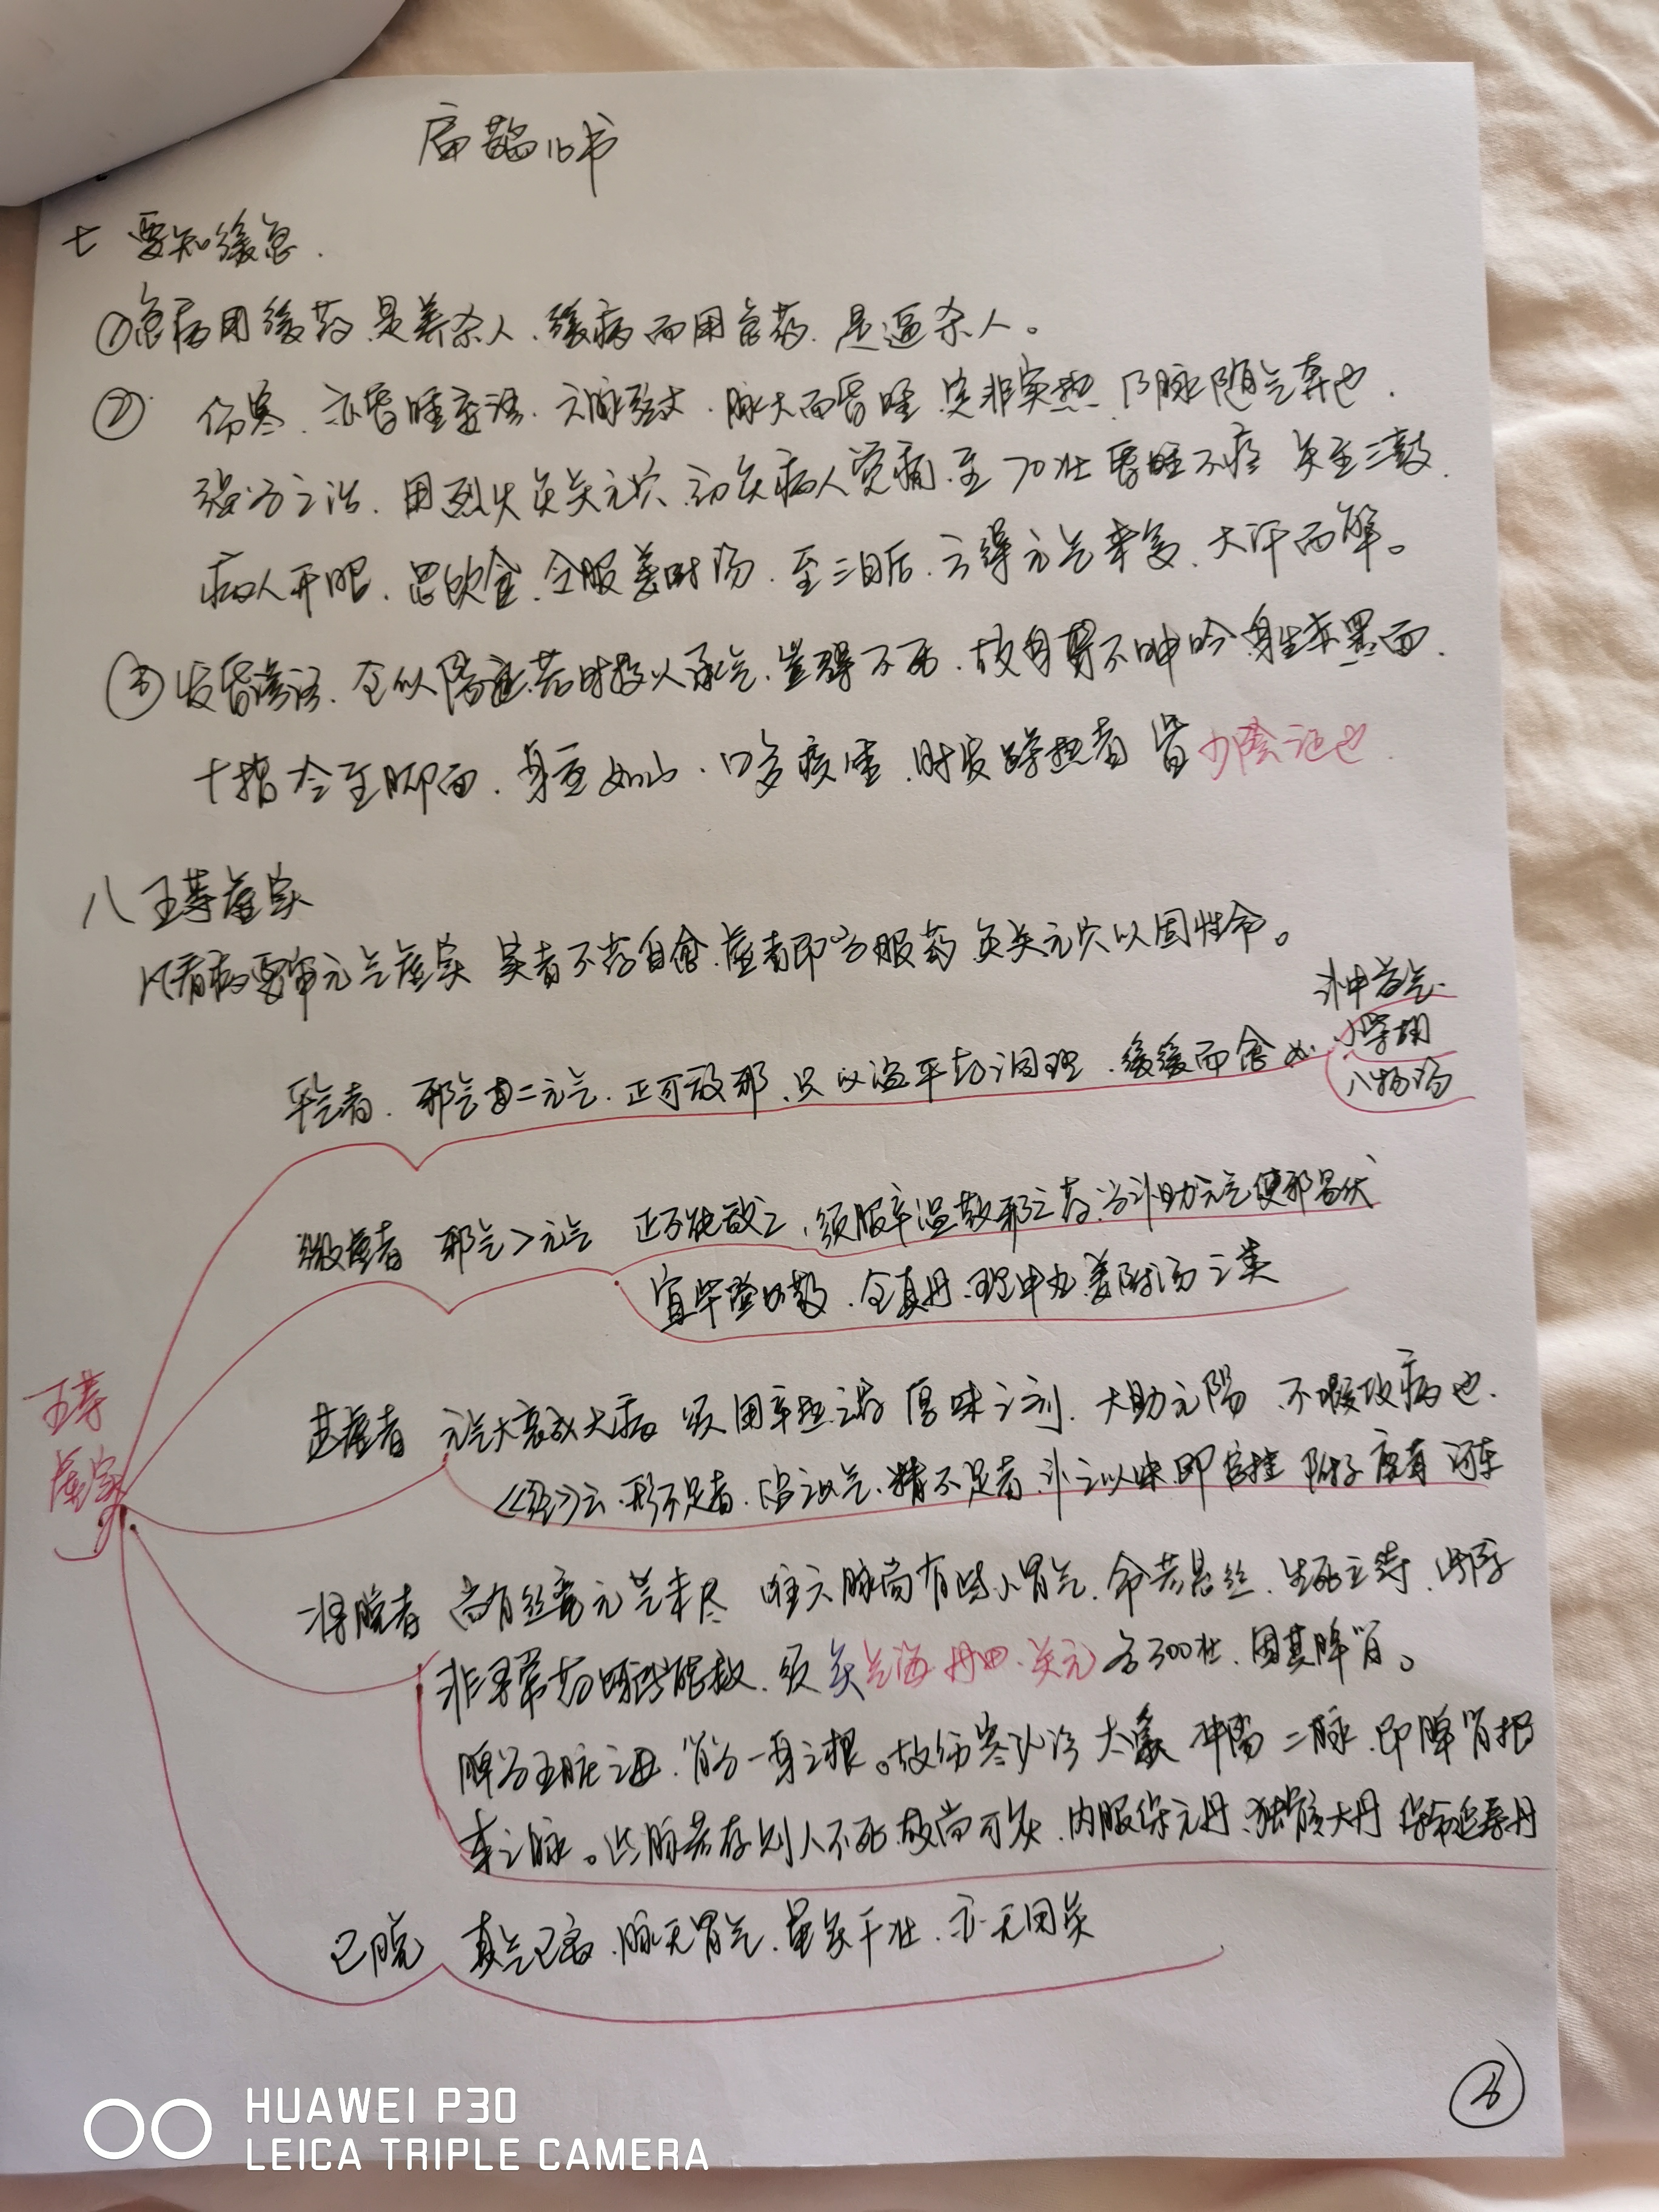 扁鹊心书
七 要知缓急.
①急病用缓药.是养杀人.缓病而用急药.是逼杀人。
② 伤寒.亦昏睡妄语.六脉弦大.脉大而昏睡.定非实热.乃脉随气奔也.
强为之治.用烈火灸关元穴.初灸病人觉痛.至70壮昏睡不疼 灸至三鼓.
病人开眼.思饮食.令服姜附汤.至三日后.方得元气来复.大汗而解。
③发昏谵语.全似阳症.若时投以承气.岂得不死.故耳聋不呻吟 身生赤黑
十指冷至脚面.身重如山.口多痰唾.时发躁热者 皆少阴证也.
八 五等虚实
凡看病要审元气虚实 实者不药自愈.虚者即当服药 灸关元穴以固性命。
平气者.邪气 元气.正可敌邪.只以温平药调理.缓缓而愈 如
补中益气.
小柴胡
八物汤
微虚者 邪气>元气 正不能敌之.须服辛温散邪之药.当补助元气使邪易伏
宜 散.全真丹.理中丸.姜附汤之类
甚虚者 元气大衰成大病 须用辛热之药 厚味之剂.大助元阳 不暇攻病也.
《经》云.形不足者.温之以气.精不足者.补之以味 即官桂 附子 鹿茸 河车
五等
虚实
将脱者 尚有丝毫元气未尽 唯六脉尚有些小胃气.命若悬丝.生死立待.此际
非寻常药饵所能救.须灸气海 丹田.关元各300壮.固其脾肾。
脾为五脏之母.肾为一身之根。故伤寒必诊太溪 冲阳 二脉.即脾肾根
本之脉。此脉若存则人不死.故尚可灸.内服保元丹.独骸大丹 保命延寿丹
已脱 真气已离.脉无胃气.虽灸千壮.亦无用矣
HUAWEI P30
LEICA TRIPLE CAMERA